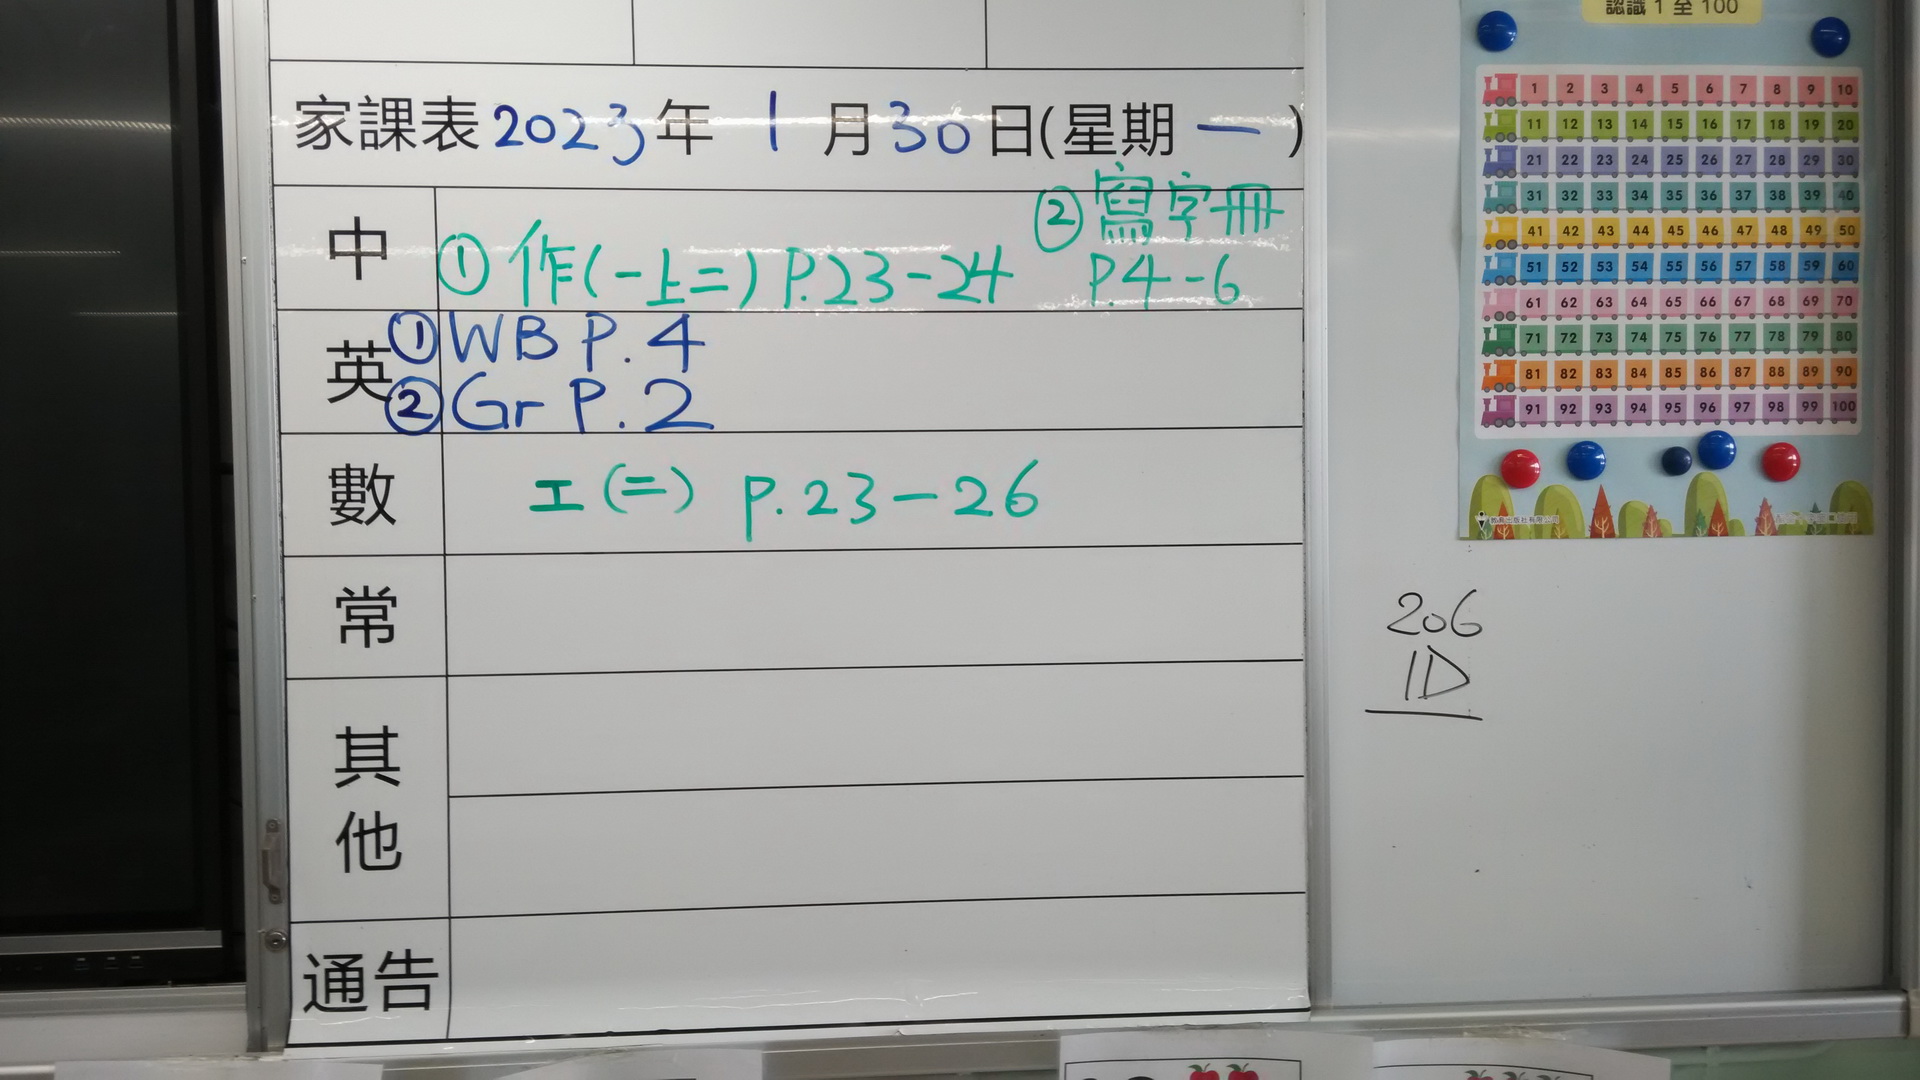 家課表2023年 1月30日(星期一)
中
① 作(一上二) P.23-24
② 寫字冊
P.4-6
英
① WB P.4
② Gr P.2
數
工(二) p.23-26
常
其他
通告
認識 1 至 100
1 2 3 4 5 6 7 8 9 10
11 12 13 14 15 16 17 18 19 20
21 22 23 24 25 26 27 28 29 30
31 32 33 34 35 36 37 38 39 40
41 42 43 44 45 46 47 48 49 50
51 52 53 54 55 56 57 58 59 60
61 62 63 64 65 66 67 68 69 70
71 72 73 74 75 76 77 78 79 80
81 82 83 84 85 86 87 88 89 90
91 92 93 94 95 96 97 98 99 100
206
1D